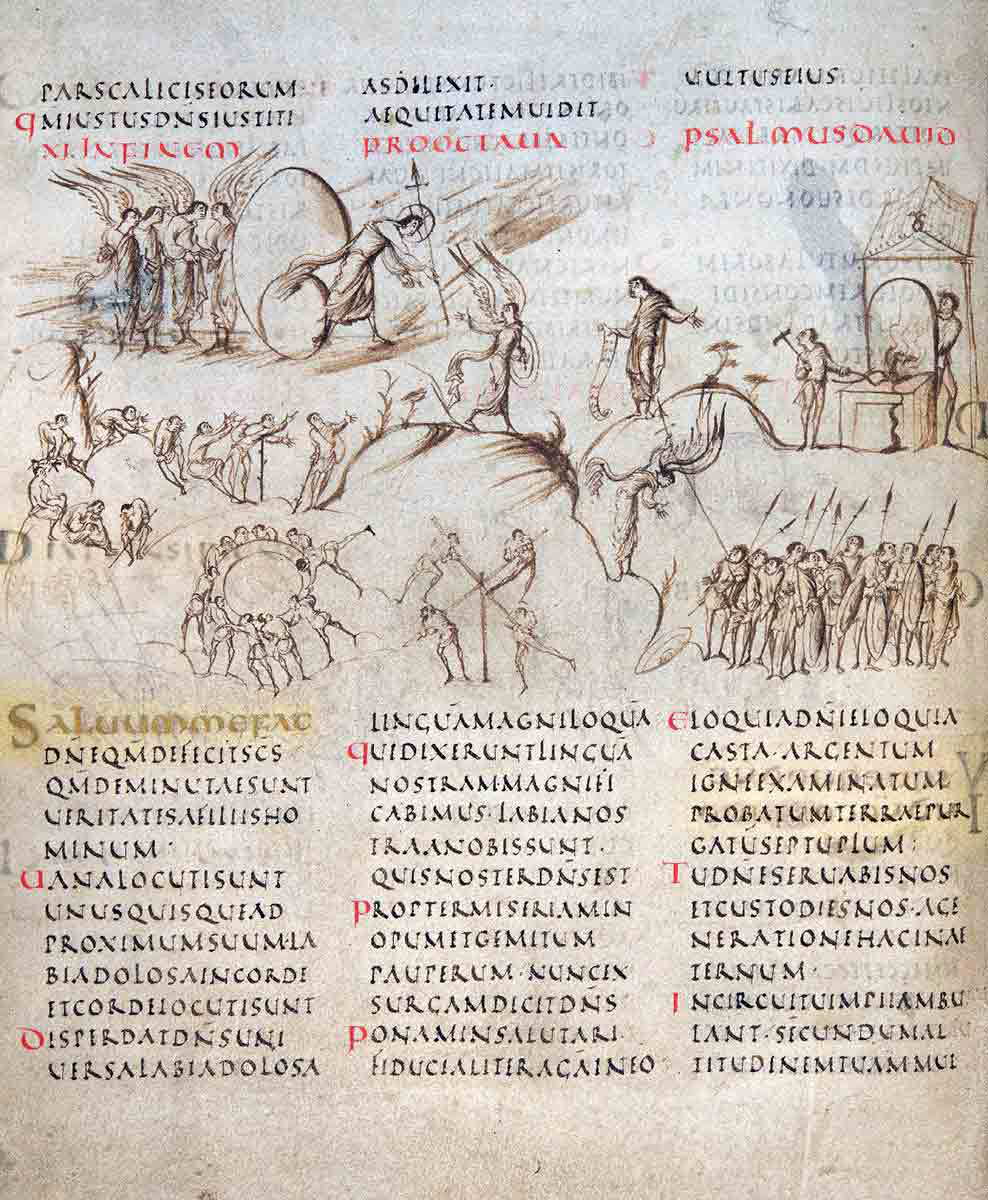 PARSCALICISEORUM
QMIUSTUSDN̄SIUSTITI
XI INFINEM
ASDILEXIT·
AEQUITATEMUIDIT
PROOCTAUA
UULTUSEIUS
PSALMUSDAUID
SALUUMMEFAC
DN̄EQM̄DEFECITSC̄S
QM̄DEMINUTAESUNT
UERITATESAFILIISHO
MINUM:
UANALOCUTISUNT
UNUSQUISQUEAD
PROXIMUMSUUM·LA
BIADOLOSAINCORDE
ETCORDELOCUTISUNT
DISPERDATDN̄SUNI
UERSALABIADOLOSA
LINGUĀMAGNILOQUĀ
QUIDIXERUNTLINGUĀ
NOSTRAMMAGNIFI
CABIMUS·LABIANOS
TRAANOBISSUNT·
QUISNOSTERDN̄SEST
PROPTERMISERIAMIN
OPUMETGEMITUM
PAUPERUM·NUNCEX
SURGAMDICITDN̄S
PONAMINSALUTARI·
FIDUCIALITERAGĀINEO
ELOQUIADN̄IELOQUIA
CASTA·ARGENTUM
IGNEEXAMINATUM·
PROBATUMTERRAEPUR
GATŪSEPTUPLUM:
TUDN̄ESERUABISNOS
ETCUSTODIESNOS·AGE
NERATIONEHACINAE
TERNUM·
INCIRCUITUIMPIIAMBU
LANT·SECUNDUMAL
TITUDINEMTUAMMUL